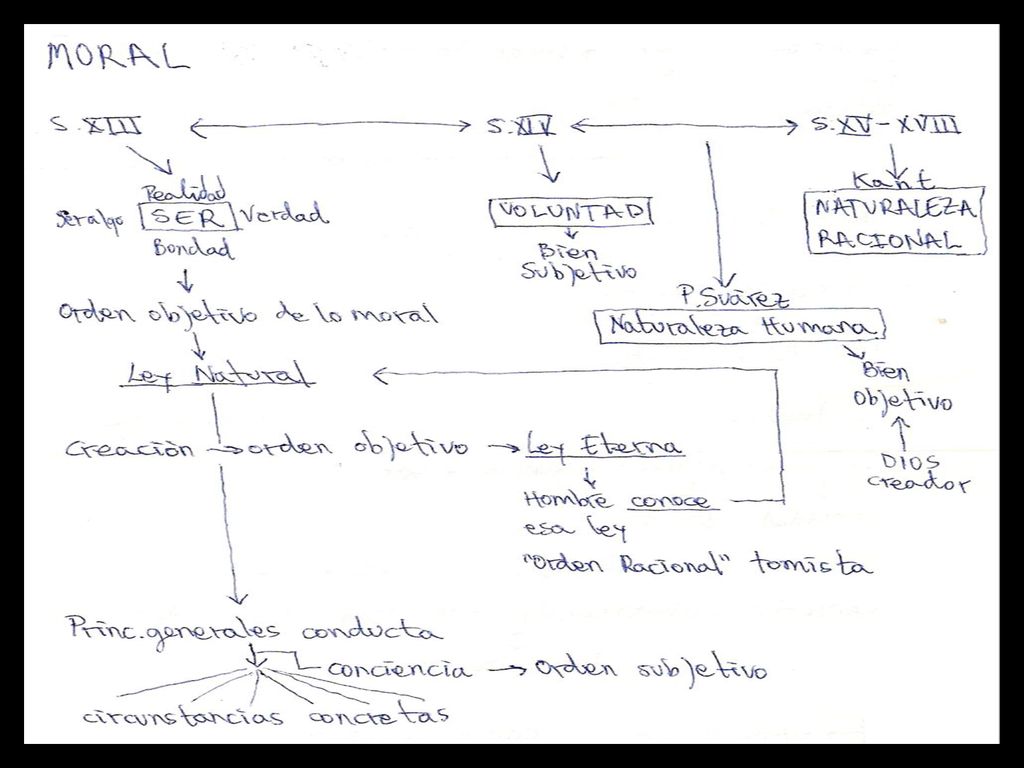 MORAL
S. XIII
S. XIV
S. XV - XVIII
Realidad
Ser algo SER Verdad
Bondad
VOLUNTAD
Bien
Subjetivo
Kant
NATURALEZA
RACIONAL
Orden objetivo de lo moral
P. Suárez
Naturaleza Humana
Ley Natural
Bien
objetivo
DIOS
creador
Creación → orden objetivo → Ley Eterna
Hombre conoce
esa ley
"Orden Racional" tomista
Princ. generales conducta
conciencia → Orden subjetivo
circunstancias concretas